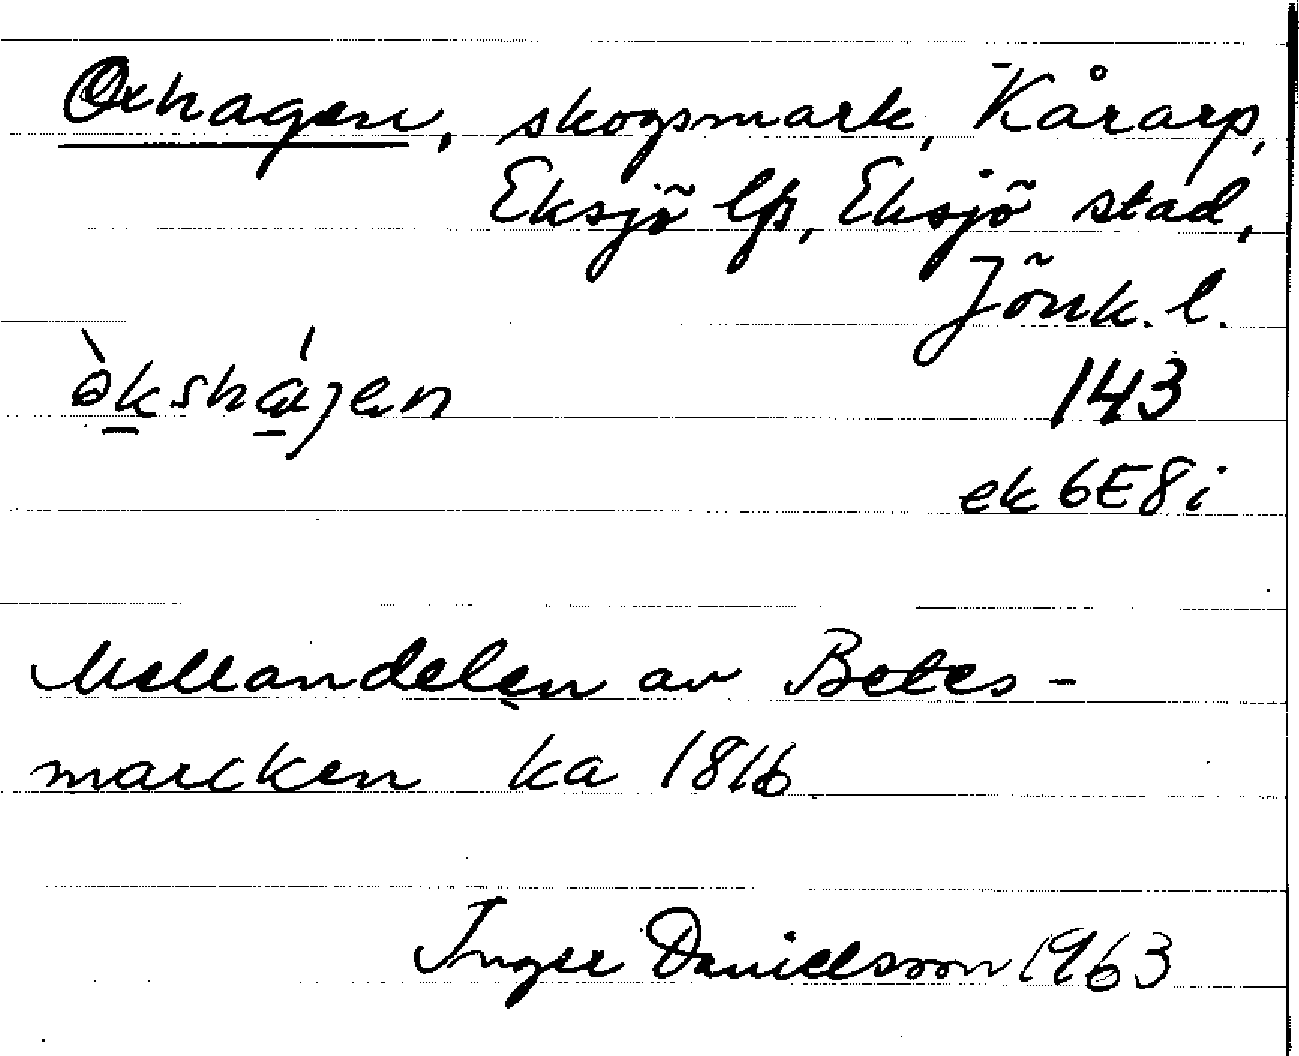 Oxhagen, skogsmark, Kårarp,
Eksjö lfs, Eksjö stad,
Jönk. l.
òkshájen 143
ek 6E8i
Mellandelen av Betes-
marcken ka 1816
Inger Danielsson 1963